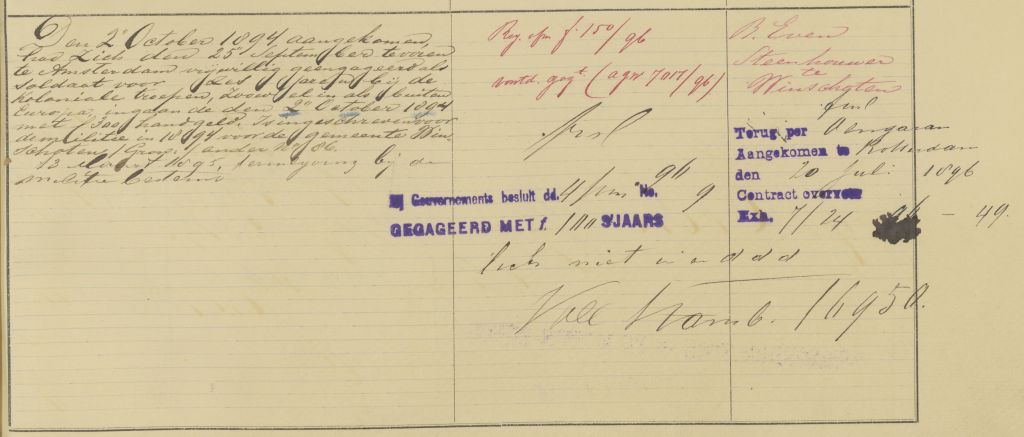 Den 2e October 1894, aangekomen,
had zich den 25e September tevoren
te Amsterdam vrijwillig geëngageerd als
soldaat voor zes jaren bij de
koloniale troepen, zoowel in als buiten
Europa, ingaande den 2en October 1894
met f 300 handgeld. Ingeschreven voor
de militie in 1894 voor de gemeente Win-
schoten (Gron:) onder No 86.
13 Maart 1895, bij de
militie bestemd
Reg. f. 150/96
gagt. (agw 7017/96)
Bij Gouvernements besluit dd. 4/ 96 No. 9
GEGAGEERD MET f. 180 'SJAARS
niet in
Stamb. 16950.
B. Even
Steenhouwer
te
Winschoten
Terug per Oengaran
Aangekomen te Rotterdam
den 20 Juli 1896
Contract
Exh. 7/24 96 - 49.